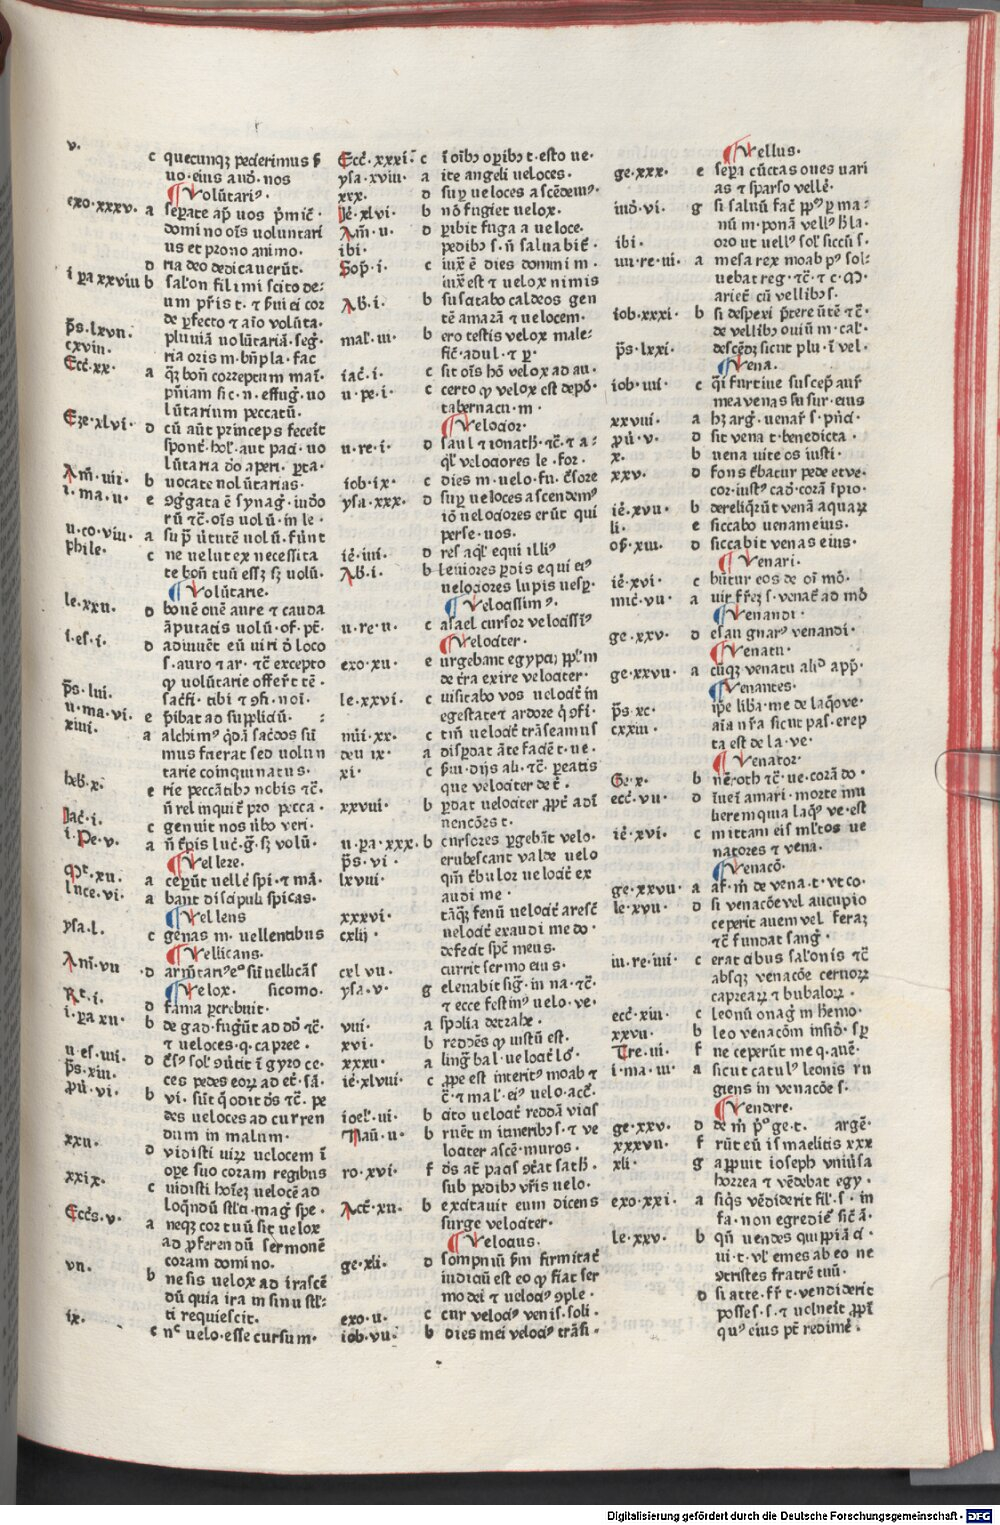 v.
c quecunqꝫ pecierimus ẜ
uo·eius aud̄·nos
Volūtariꝰ·
exo·xxxv· a sepate ap̄ uos p̄mic̄·
domino oīs voluntari
us et prono animo·
d ria deo dedicauerūt·
i pa xxviii b salon fili mi scito de⸗
um pr̄is t· ⁊ ẜuici cor
de ꝑfecto ⁊ aīo volūta·
p̄s·lxvii· pluuiā uolūtariā·seg̃·
cxviii· ria oris m·bn̄pla·fac
Ecc̄·xx· a qꝫ bon̄ correptum mai·
pn̄iam sic·n·effug̃·uo
lūtarium peccatū·
Eze·xlvi· d cū aūt princeps fecerit
spont̄·hol̄·aut paci·uo
lūtaria dō aperi·pta·
Am̄·iiii· b uocate uolūtarias·
i·ma·ii· e ꝯg̃gata ē synag̃·iudeo
rū ⁊c̄·oīs uolū·in le·
ii·co·viii· a sup̄ ututē uolū·fūnt
phile· c ne uelut ex necessita
te bon̄ tuū essꝫ sꝫ uolū·
Volūtarie·
le·xxii· d bouē ouē aure ⁊ cauda
āputatis uolū·of·pt̄·
i·es·i· d adiuuēt eū uiri d̄ loco
s·auro ⁊ ar·⁊c̄ excepto
ꝙ uolūtarie offerr̄t tē·
p̄s·liii· sac̄fi·tibi ⁊ ꝯfi·noī·
ii·ma·vi· e p̄ibat ad suppliciū·
xiiii· a alchimꝰ qd̄ā sac̄dos sū
mus fuerat sed uolun
tarie coinquinatus·
heb·x· e rie peccātibꝰ nobis ⁊c̄·
n̄ relinquit̄ pro pecca·
Iac̄·i· c genuit nos ūbo veri·
i·Pe·v· a n̄ t̄pis luc̄·g̃·sꝫ volū·
Vellere·
mt̄·xii· a ceperūt uelle᷑ spi·⁊ mā·
luce·vi· a bant discipuli spicas·
Vellens
ysa·l· c genas m·uellentibus
Vellicans·
Am̄·vii d arm̄tariꝰ eᵒ sū uellicās
Velox· sicomo·
Re̅·i· d fama percrebuit·
i·pa xii· b de gad·fugūt ad dd̄ ⁊c̄·
⁊ ueloces·q·capree·
ii·es·iiii· d c̄sꝰ sol̄ ꝯūtit̄ ī gyro ce·
p̄s·xiii· ces pedes eoꝝ ad ef·sā·
pū·vi· b vi·sūt q̄ odit ds̄ ⁊c̄·pe
des ueloces ad curren
dum in malum·
xxii· d vidisti uiꝝ uelocem ī
ope suo coram regibus
xxix· c uidisti hoīeꝫ uelocē ad
loqndū stl̄a·mag̃ spe·
Eccs̄·v· a neqꝫ cor tuū sit uelox
ad ꝓferendū sermonē
coram domino·
vii· b ne sis uelox ad irascē
dū quia ira in sinu stl̄⸗
ti requiescit·
ix· c nᶜ uelo·esse cursum·
Ecc̄·xxxi· c ī oībꝰ opibꝰ t·esto ue·
ysa·xviii· a ite angeli ueloces·
xxx· d suꝑ ueloces ascēdemꝰ·
Ie̅·xlvi· b nō fugiet uelox·
Am̄·ii· d pibit fuga a ueloce·
ibi· pedibꝰ s·n̄ saluabit̄·
Sop̄·i· c iuxᵃ ē dies domini m·
iuxᵃ est ⁊ uelox nimis
Ab̄·i· b suscitabo caldeos gen
tē amarā ⁊ uelocem·
mal̄·iii· b ero testis velox male⸗
fic̄·adul·⁊ p·
iac̄·i· c sit oīs hō velox ad au·
ii·pe·i· c certo ꝙ velox est depō·
tabernacu·m·
Velocior·
ii·re·i· d saul ⁊ ionath̄·⁊c̄·⁊ a⸗
ql̄ velociores le·for·
iob·ix· c dies m·uelo·fu·c̄sore
ysa·xxx· d suꝑ ueloces ascendemꝰ
iō uelociores erūt qui
perse·uos·
ie̅·iiii· d res aql̄ equi illiꝰ
Ab̄·i· b leuiores pdis equi eiꝰ
uelociores lupis uesp·
Velocissimꝰ·
ii·re·ii· c asael cursor velocissiꝰ
Velociter·
exo·xii· e urgebant egypcij ppl̄m
de t̄ra exire velociter·
le·xxvi· c uisitabo vos uelocit̄ in
egestate ⁊ ardore q̄ ꝯfi·
nūi·xx· c tm̄ uelocit̄ trāseamus
deu ix· a disp̄dat āte faciē t·ue·
xi· c ẜui·dijs ali·⁊c̄·peatis
que velociter de t̄·
xxviii· b pdat uelociter ꝓpt̄ adī
nencōes t·
ii·pa·xxx· b cursores pgebāt velo·
p̄s·vi· erubescant valde uelo
lxviii· qm̄ t̄bulor uelocit̄ ex
audi me·
xxxvi· tāqꝫ fenū uelocit̄ aresc̄t
cxlij uelocit̄ exaudi me do·
defecit sp̄c meus·
cxl vii· currit sermo eius·
ysa·v· g eleuabit sig̃·in na·⁊c̄·
⁊ ecce festinꝰ uelo·ve·
viii· a spolia detrahe·
xvi· b reddēs ꝙ iustū est·
xxxii· a ling̃ bal·uelocit̄ lō·
ie̅·xlviii· c ꝓpe est interitꝰ moab ⁊
c̄·⁊ mal·eiꝰ uelo·acc̄·
ioel̄·iii· b cito uelocit̄ reddā vias
Naū·ii· b ruēt in itineribꝰ s·⁊ ve
lociter ascē·muros·
ro·xvi· f ds̄ at̄ pacis ꝯt̄at sath̄·
sub pedibꝰ vr̄is uelo·
Act̄·xii· b excitauit eum dicens
surge velociter·
Velocius·
ge·xli· d sompniū ẜm firmitat̄
iudiciū est eo ꝙ fiat ser
mo dei ⁊ uelociꝰ ꝯple·
exo·ii· c cur velociꝰ venis·soli·
iob·vii· b dies mei velociꝰ trāsi·
Vellus·
ge·xxx· e sepa cūctas oues uari
as ⁊ sparso vellē·
iud̄·vi· g si saluū fac̄ ppꝰ p ma⸗
nū m·ponā vellꝰ h̄ la·
ibi· oro ut uellꝰ sol̄ siccū s·
iiii·re·iii· a mesa rex moab pꝰ sol⸗
uebat reg·⁊c̄·⁊ c·m̄·
ariet̄ cū vellibꝰ s·
iob·xxxi· b si despexi p̄tereūtē ⁊c̄·
de vellibꝰ ouiū m·cal̄·
p̄s·lxxi· descēdꝫ sicut plu·ī vel·
Vena·
iob·iiii· c qī furtiue suscep̄ aur̄
mea venas susur·eius
xxviii· a hꝫ arg̃·uenar̄ s·pn̄ci·
pū·v· d sit vena t·benedicta·
x· b uena uite os iusti·
xxv· d fons t̄batur pede et ve·
cor·iustꝰ cad̄·corā īpio·
ie̅·xvii· b dereliq̄rūt venā aquaꝝ
li· e siccabo uenam eius·
os̄·xiii· d siccabit venas eius·
Venari·
ie̅·xvi· c būtur eos de oī mō·
mic̄·vii· a uir fr̄eꝫ s·venat̄ ad mō
Venandi·
ge·xxv· d esau gnarꝰ venandi·
Venatu·
ge·xxvii· a cūqꝫ venatu aliᵈ app̄·
Venantes·
p̄s·xc· ip̄e libᵃ·me de laqō ve·
cxxiii· aīa nr̄a sicut pas·erep
ta est de la·ve·
Venator·
Ge·x· b nēroth ⁊c̄·ue·corā do·
ecc̄·vii· d īueī amari·morte mu
lierem quia laqꝰ ve·est
ie̅·xvi· c mittam eis ml̄tos ue
natores ⁊ vena·
Venacō·
ge·xxvii· a af·m̄ de vena·t·vt co·
le·xvii· d si venacōe vel aucupio
ceperit auem vel feraꝫ
⁊c̄ fundat sang̃·
iii·re·iiii· c erat cibus salonis ⁊c̄
absqꝫ venacōe ceruoꝝ
capreaꝝ ⁊ bubaloꝝ·
ecc̄·xiii· c leonū onag̃ in hemo·
xxvii· b leo venacōm insid̄·sp
Tre·iii· f ne ceperūt me q·auē·
i·ma·iii· a sicut catulꝰ leonis ru
giens in venacōe s·
Vendere·
ge·xxv· d de m̄ pᵒ ge·t· argē·
xxxvii· f rūt eū ismaelitis xxx
xli· g apuit ioseph vniūsa
horrea ⁊ vēdebat egy·
exo·xxi· a siqs vēdiderit fil̄·s·in
fa·non egrediet̄ sic̄ ā·
le·xxv· b qn̄ uendes quippiā ci·
ui·t·vl̄ emes ab eo ne
ꝯtristes fratrē tuū·
d si atte·fr̄ t·vendiderit
posses·s·⁊ uoluerit ꝓpī
quꝰ eius pt̄ redime·
Digitalisierung gefördert durch die Deutsche Forschungsgemeinschaft - DFG